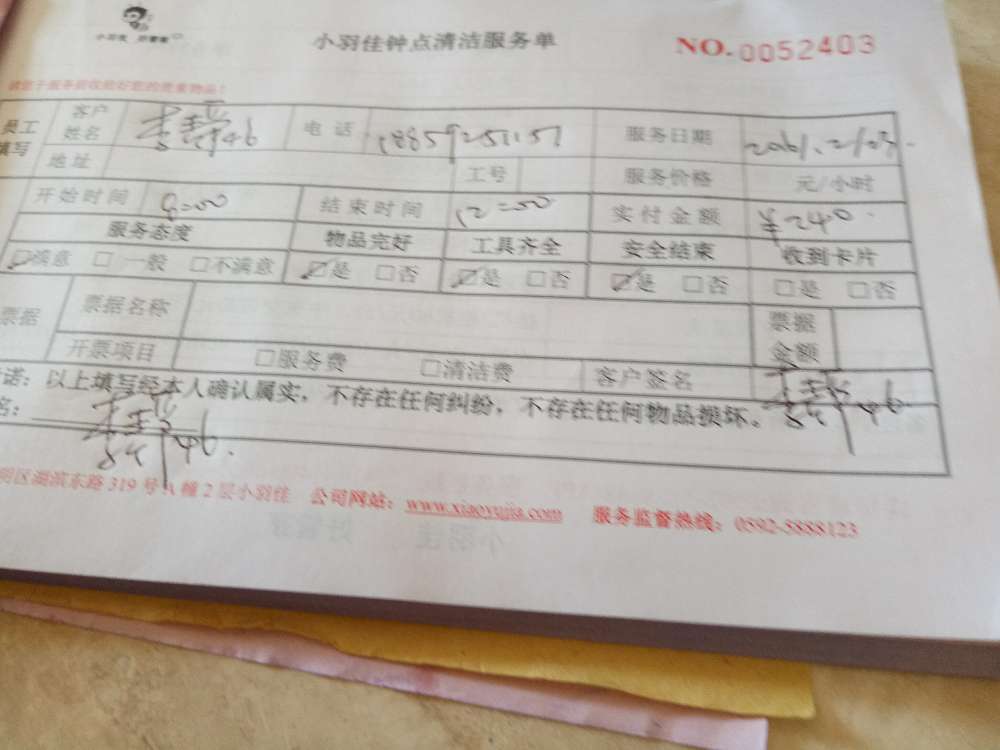 小羽佳 好管家
小羽佳钟点清洁服务单
NO. 0052403
员工填写 客户姓名 电话 18859251151 服务日期
地址 工号 服务价格 元/小时
开始时间 结束时间 12=00 实付金额 ¥240
服务态度 物品完好 工具齐全 安全结束 收到卡片
☑满意 □一般 □不满意 ☑是 □否 ☑是 □否 ☑是 □否 □是 □否
票据 票据名称 票据金额
开票项目 □服务费 □清洁费 客户签名
诺：以上填写经本人确认属实，不存在任何纠纷，不存在任何物品损坏。
名：
明区湖滨东路319号A幢2层小羽佳 公司网站：www.xiaoyujia.com 服务监督热线：0592-5888123